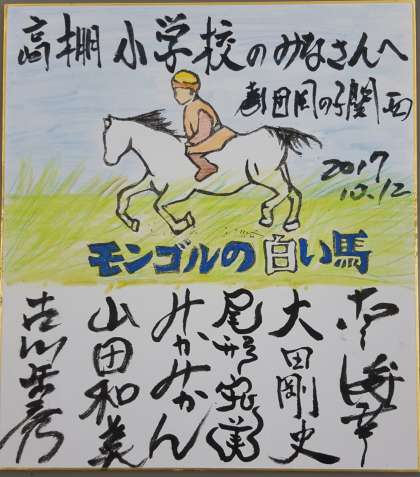 高棚小学校のみなさんへ
劇団風の子関西
2017
10.12
モンゴルの白い馬
大田剛史
尾形宛美
みやみかん
山田和美